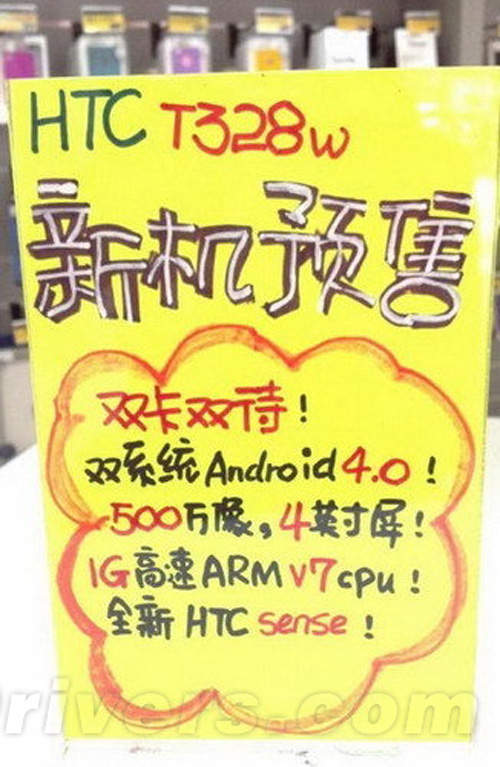 HTC T328w
新机预售
双卡双待！
双系统Android 4.0！
500万像，4英寸屏！
1G高速ARM v7cpu！
全新HTC sense！
rivers.com